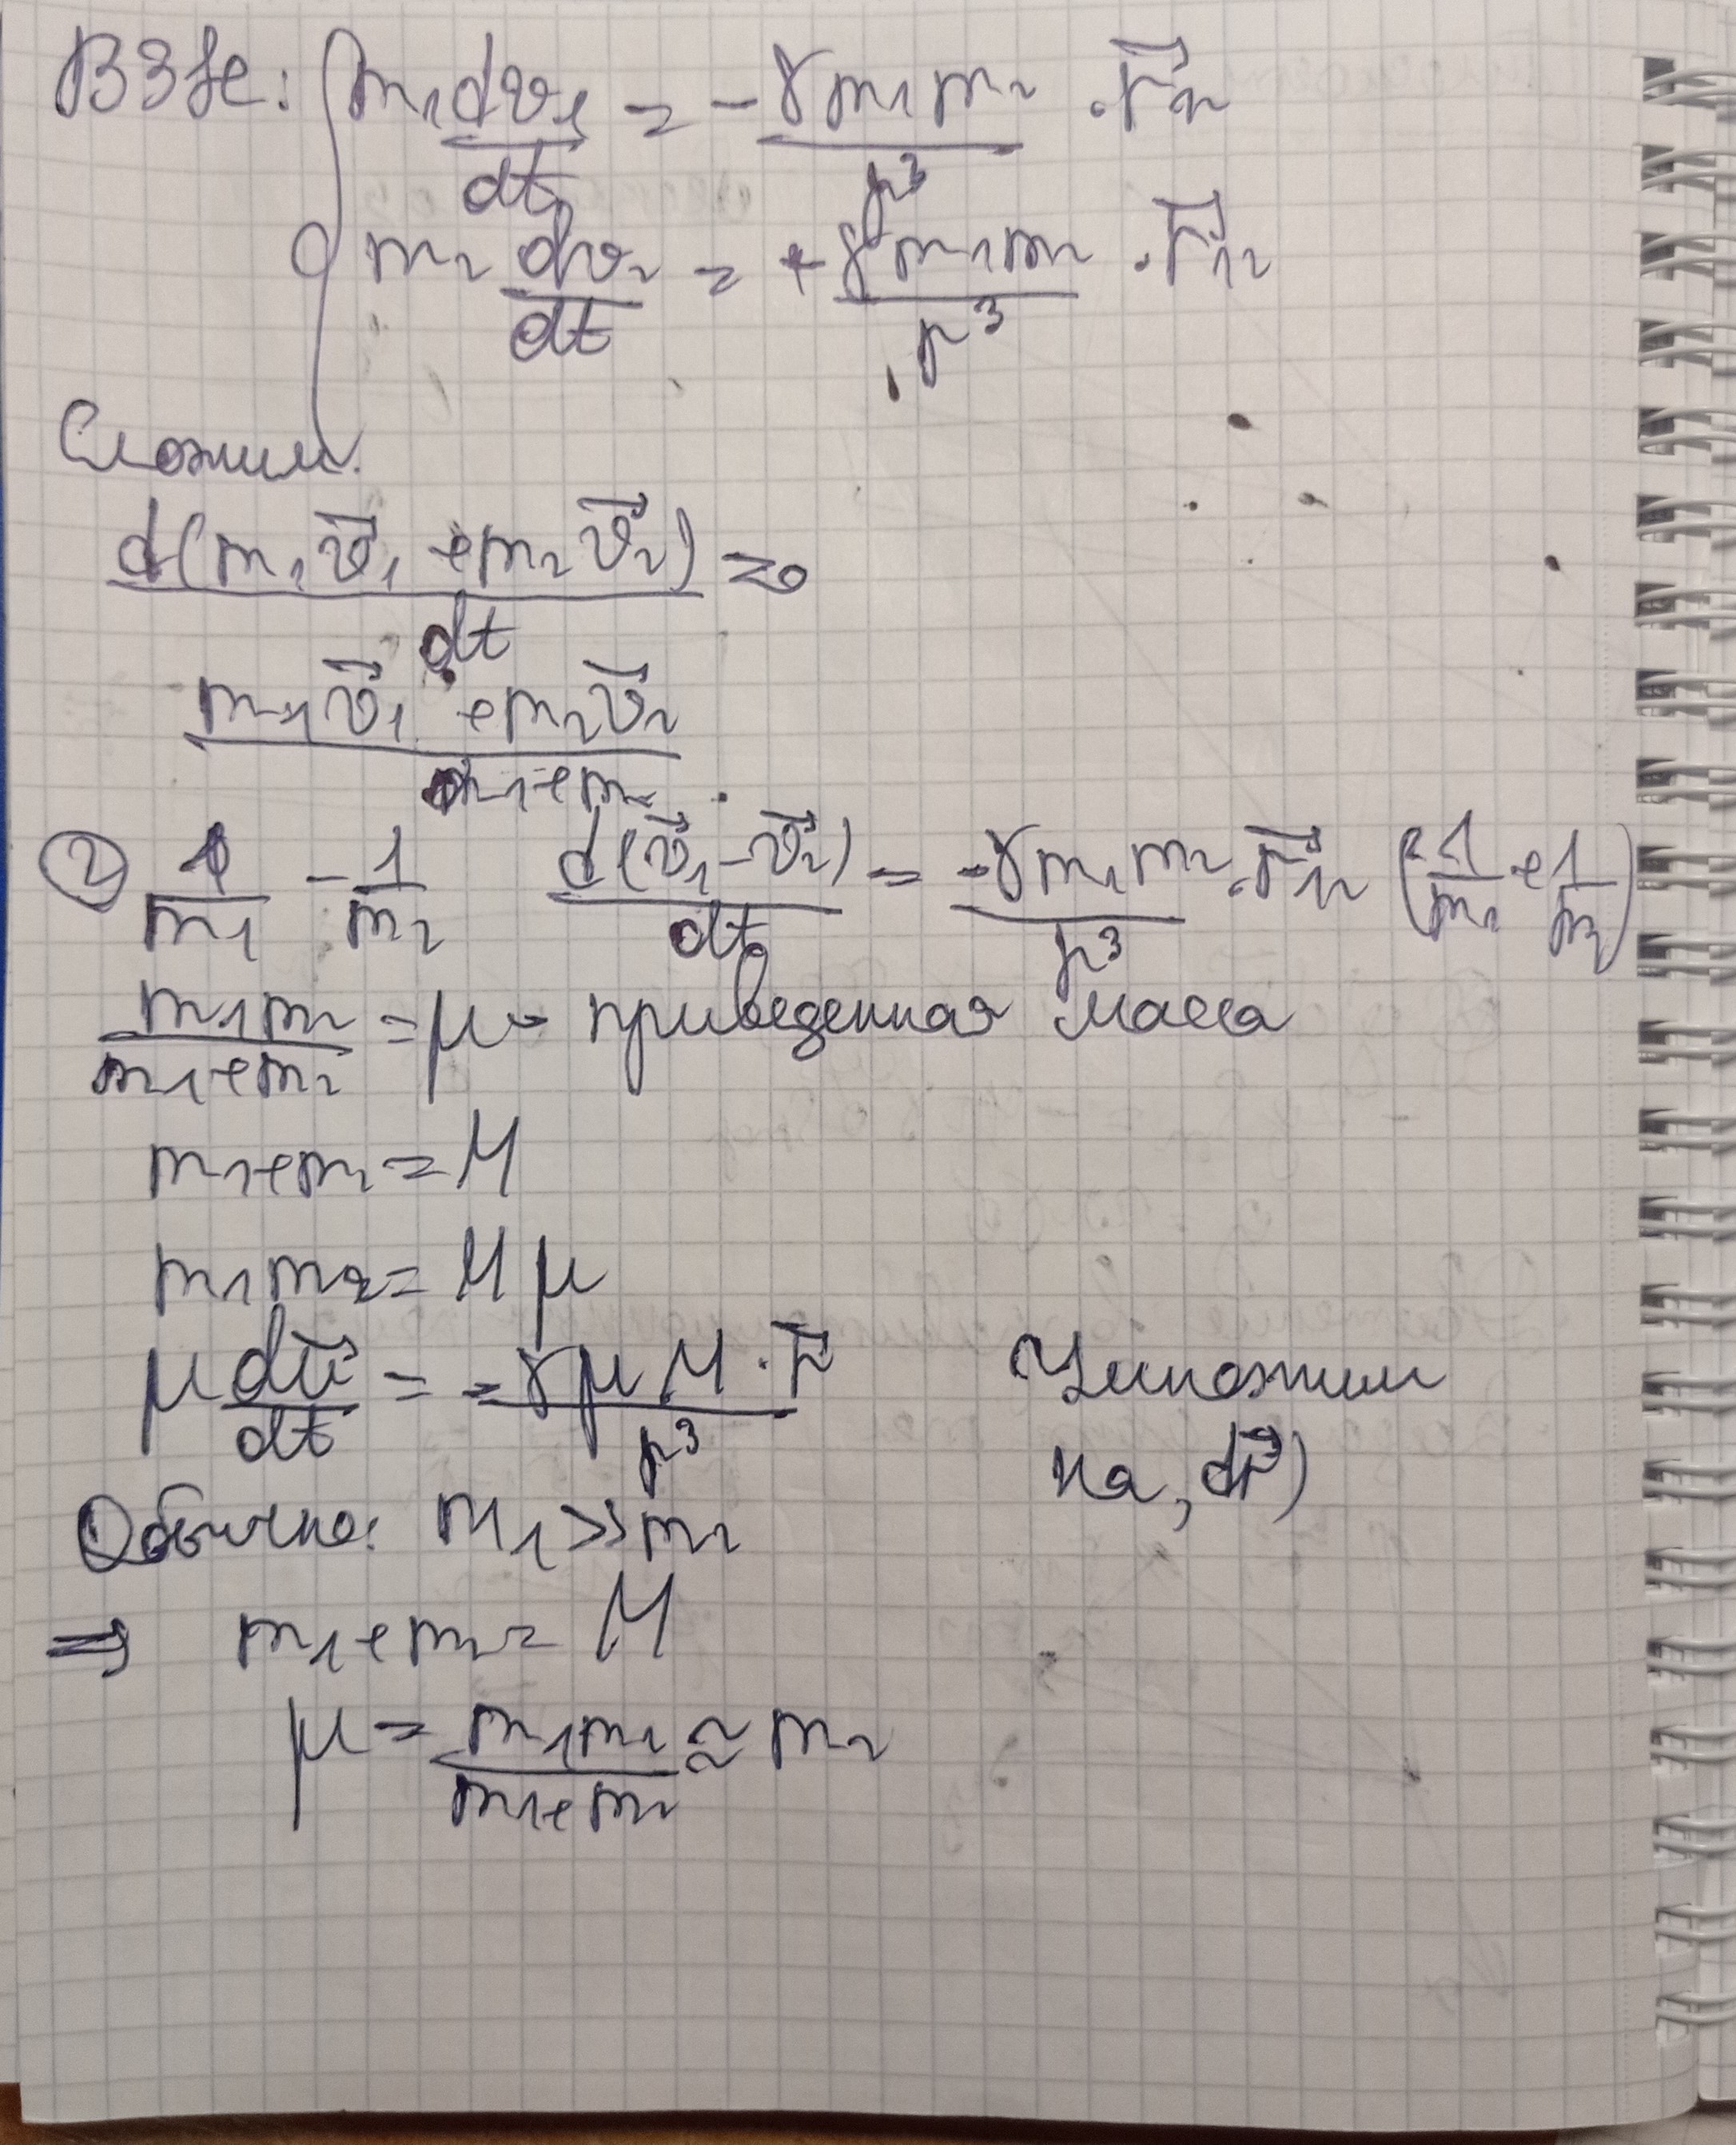 m₁ dv₁/dt = - γm₁m₂/r³ · r⃗₁₂
m₂ dv₂/dt = + γm₁m₂/r³ · r⃗₁₂
Сложим.
d(m₁v⃗₁ + m₂v⃗₂)/dt = 0
(m₁v⃗₁ + m₂v⃗₂)/(m₁+m₂)
② 1/m₁ - 1/m₂ d(v⃗₁ - v⃗₂)/dt = - γm₁m₂/r³ · r⃗₁₂ (1/m₁ + 1/m₂)
m₁m₂/(m₁+m₂) = μ - приведенная масса
m₁+m₂ = M
m₁m₂ = Mμ
μ du⃗/dt = - γμM · r⃗/r³ Умножим
на, dr⃗)
Обычно: m₁ >> m₂
⇒ m₁+m₂ = M
μ = m₁m₂/(m₁+m₂) ≈ m₂